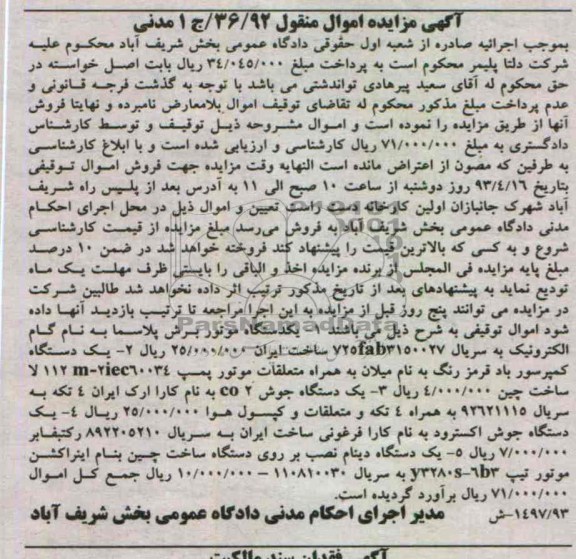 آگهی مزایده اموال منقول ۳۶/۹۲/ج ۱ مدنی
بموجب اجرائیه صادره از شعبه اول حقوقی دادگاه عمومی بخش شریف آباد محکوم علیه
شرکت دلتا پلیمر محکوم است به پرداخت مبلغ ۳۴/۰۴۵/۰۰۰ ریال بابت اصل خواسته در
حق محکوم له آقای سعید پیرهادی تواندشتی می باشد با توجه به گذشت فرجه قانونی و
عدم پرداخت مبلغ مذکور محکوم له تقاضای توقیف اموال بلامعارض نامبرده و نهایتا فروش
آنها از طریق مزایده را نموده است و اموال مشروحه ذیل توقیف و توسط کارشناس
دادگستری به مبلغ ۷۱/۰۰۰/۰۰۰ ریال کارشناسی و ارزیابی شده است و با ابلاغ کارشناسی
به طرفین که مصون از اعتراض مانده است النهایه وقت مزایده جهت فروش اموال توقیفی
بتاریخ ۹۳/۴/۱۶ روز دوشنبه از ساعت ۱۰ صبح الی ۱۱ به آدرس بعد از پلیس راه شریف
آباد شهرک جانبازان اولین کارخانه سمت راست تعیین و اموال ذیل در محل اجرای احکام
مدنی دادگاه عمومی بخش شریف آباد به فروش می‌رسد مبلغ مزایده از قیمت کارشناسی
شروع و به کسی که بالاترین قیمت را پیشنهاد کند فروخته خواهد شد در ضمن ۱۰ درصد
مبلغ پایه مزایده فی المجلس از برنده مزایده اخذ و الباقی را بایستی ظرف مهلت یک ماه
تودیع نماید به پیشنهادهای بعد از تاریخ مذکور ترتیب اثر داده نخواهد شد طالبین شرکت
در مزایده می توانند پنج روز قبل از مزایده به این اجرا مراجعه تا ترتیب بازدید آنها داده
شود اموال توقیفی به شرح ذیل می‌باشد ۱- یکدستگاه موتور برش پلاسما به نام گام
الکترونیک به سریال ۷۲۵fab۳۱۵۰۰۲۷ ساخت ایران ۲۵/۰۰۰/۰۰۰ ریال ۲- یک دستگاه
کمپرسور باد قرمز رنگ به نام میلان به همراه متعلقات موتور پمپ m-۲iec۶۰۰۳۴ ۱۱۲ لا
ساخت چین ۴/۰۰۰/۰۰۰ ریال ۳- یک دستگاه جوش co ۲ به نام کارا ارک ایران ۴ تکه به
سریال ۹۲۶۲۱۱۱۵ به همراه ۴ تکه و متعلقات و کپسول هوا ۲۵/۰۰۰/۰۰۰ ریال ۴- یک
دستگاه جوش اکسترود به نام کارا فرغونی ساخت ایران به سریال ۸۹۲۲۰۵۲۱۰ رکتیفایر
۷/۰۰۰/۰۰۰ ریال ۵- یک دستگاه دینام نصب بر روی دستگاه ساخت چین بنام اینراکشن
موتور تیپ y۳۲۸۰s-۶b۳ به سریال ۱۱۰۸۲۰۰۳۰ – ۱۰/۰۰۰/۰۰۰ ریال جمع کل اموال
۷۱/۰۰۰/۰۰۰ ریال برآورد گردیده است.
۱۴۹۷/۹۳-ش مدیر اجرای احکام مدنی دادگاه عمومی بخش شریف آباد
آگهی فقدان سند مالکیت
ParsNamadData